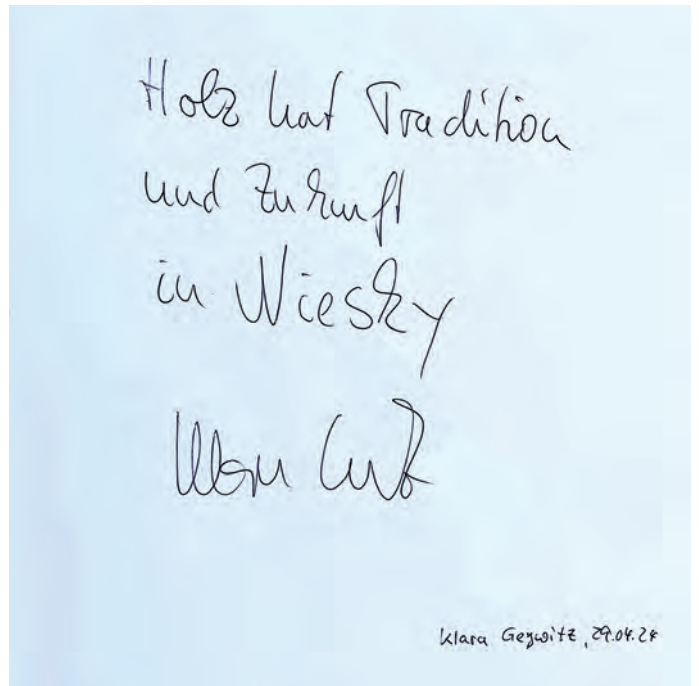 Holz hat Tradition
und Zukunft
in Niesky
Klara Geywitz, 29.04.24